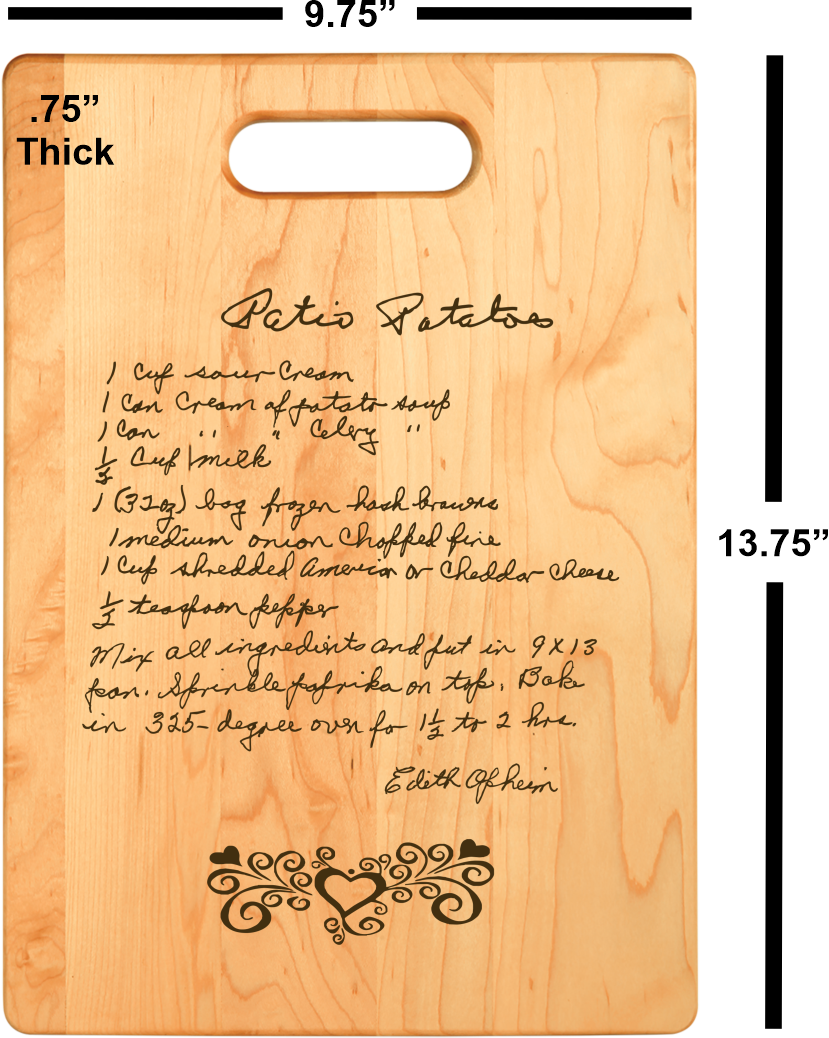 9.75”
.75”
Thick
Patio Potatoes
1 Cup sour Cream
1 Can Cream of potato soup
1 Can " " Celery "
½ Cup milk
1 (32oz) bag frozen hash browns
1 medium onion Chopped fine
1 Cup shredded American or Cheddar Cheese
½ teaspoon pepper
13.75”
Mix all ingredients and put in 9X13
pan. Sprinkle paprika on top. Bake
in 325-degree oven for 1½ to 2 hrs.
Edith Opheim